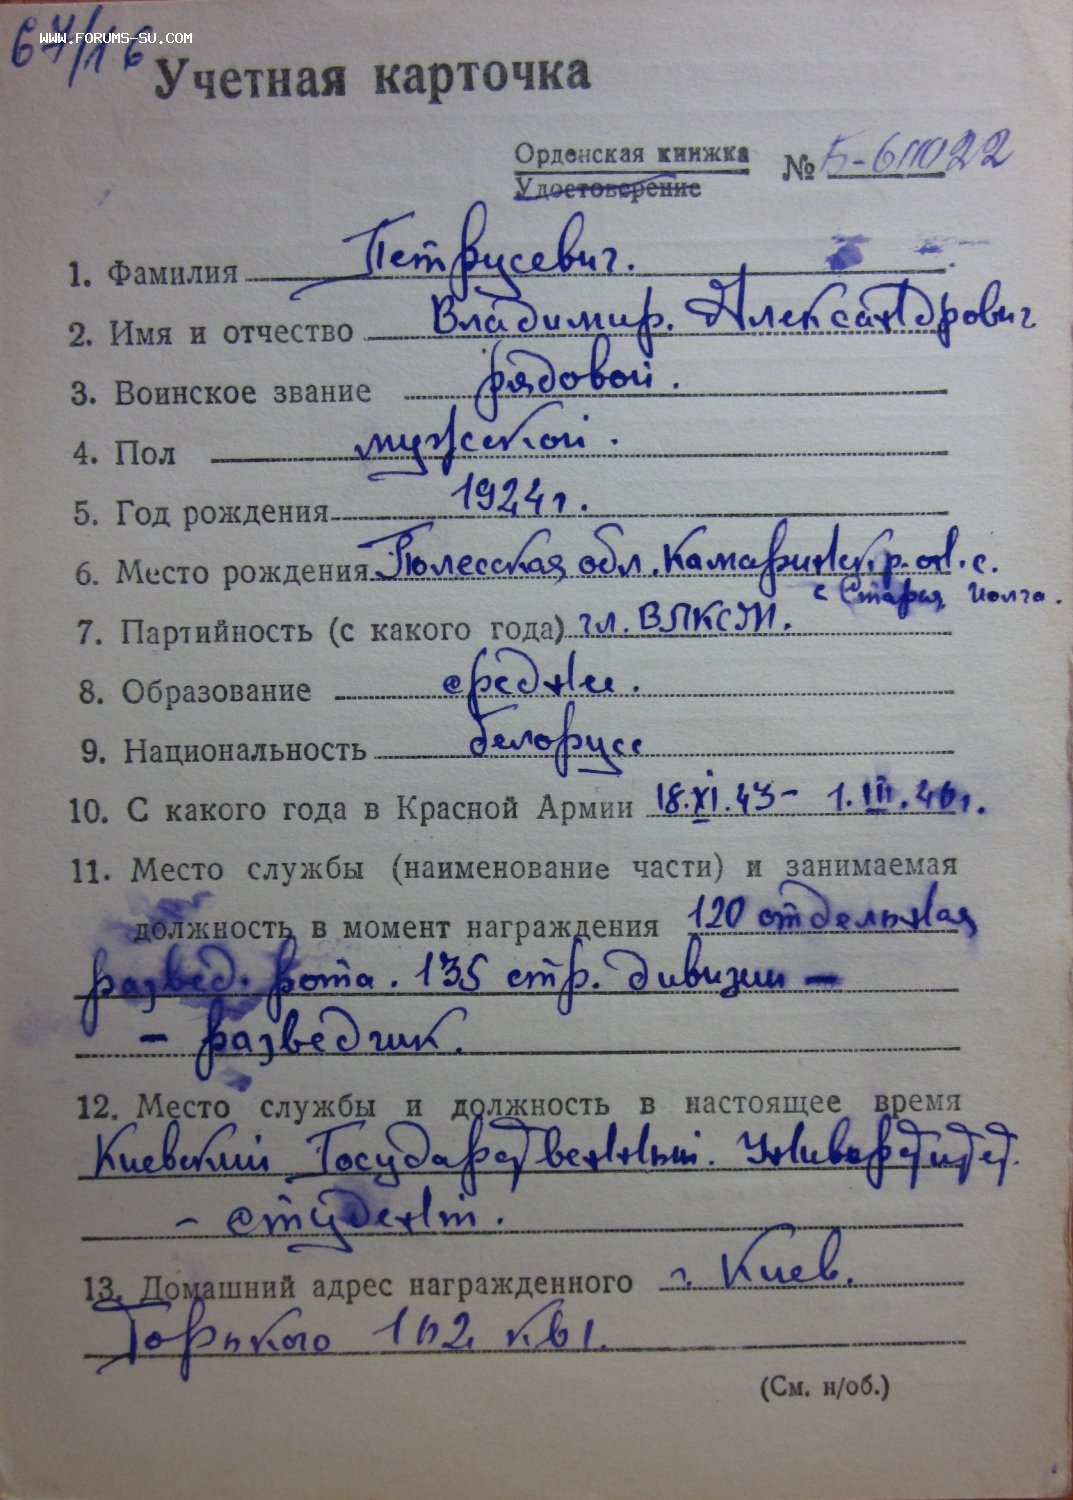 67/16
WWW.FORUMS-SU.COM
Учетная карточка
Орденская книжка № Б-611022
Удостоверение
1. Фамилия Петрусевич.
2. Имя и отчество Владимир. Александрович
3. Воинское звание рядовой.
4. Пол мужской.
5. Год рождения 1924 г.
6. Место рождения Полесская обл. Комаринск. р-он. с.
с Старая Иолча.
7. Партийность (с какого года) чл. ВЛКСМ.
8. Образование средни.
9. Национальность белорусс
10. С какого года в Красной Армии 18.XI.43 - 1.III.46 г.
11. Место службы (наименование части) и занимаемая
должность в момент награждения 120 отдельная
развед. рота. 135 стр. дивизии -
- разведчик.
12. Место службы и должность в настоящее время
Киевский Государственный. Университет.
- студент.
13. Домашний адрес награжденного г. Киев.
Горького 102 кв 1.
(См. н/об.)